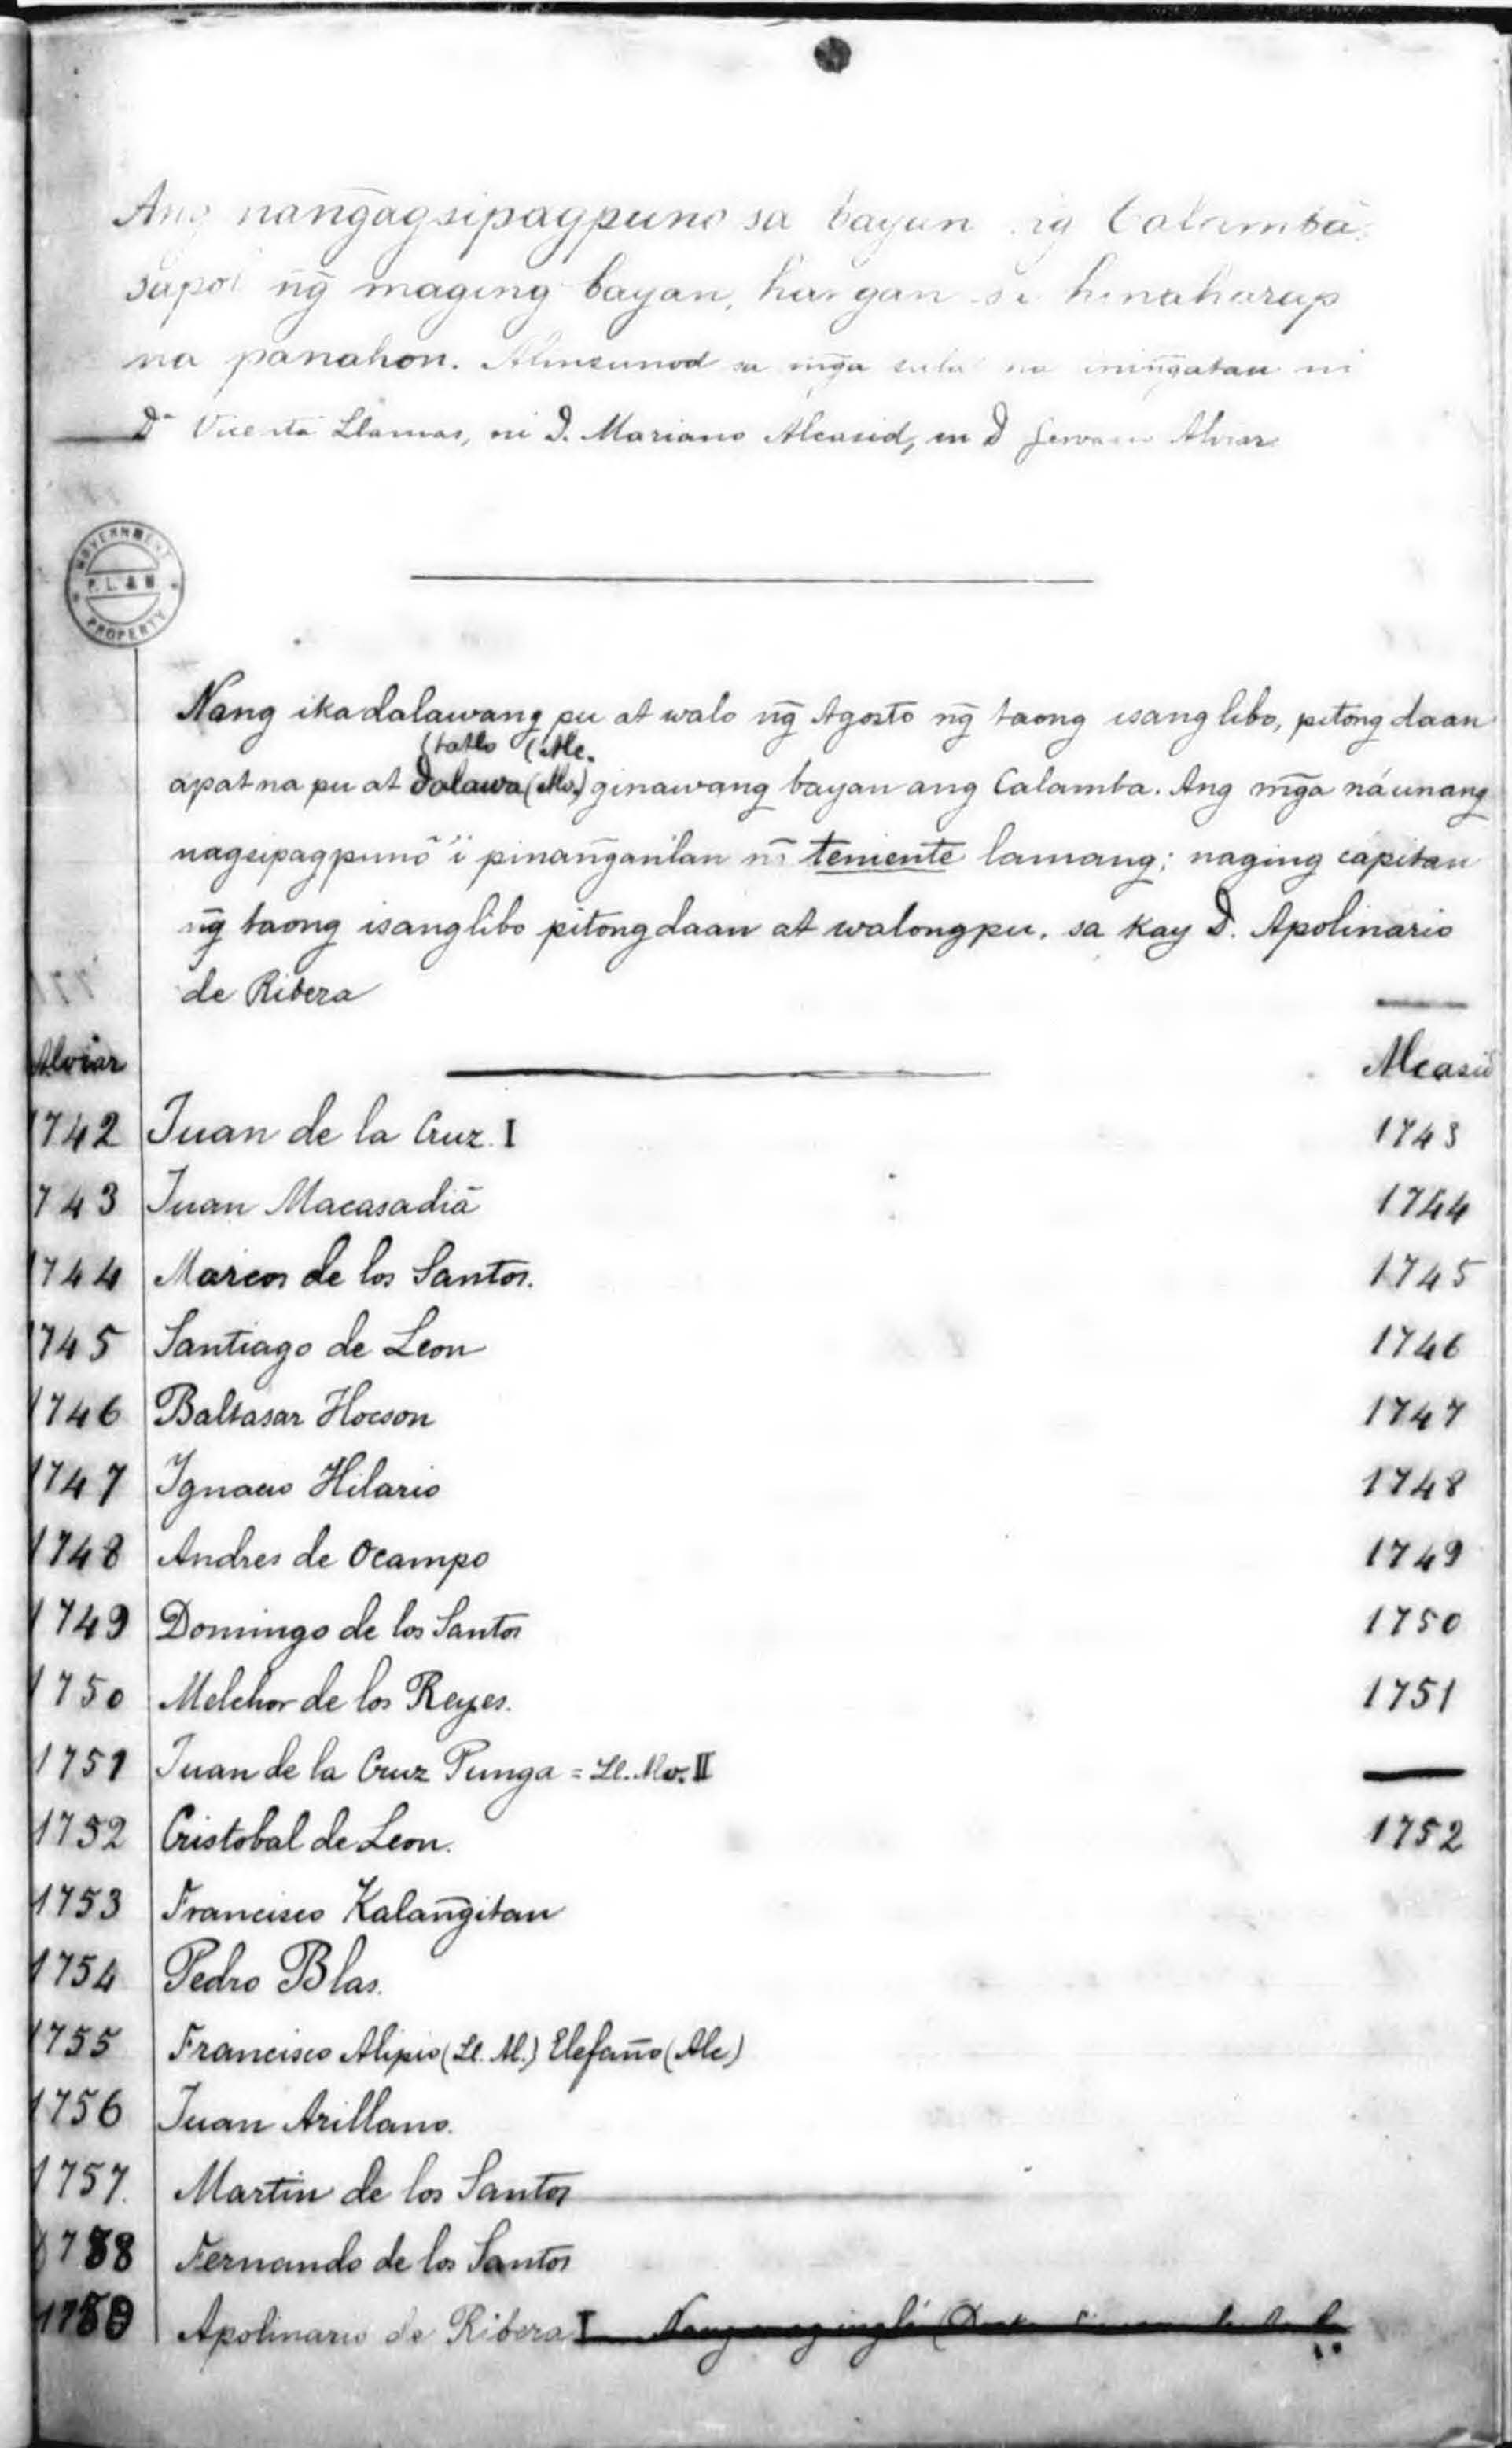 Ang nang̃agsipagpuno sa bayan ng̃ Calamba
sapol ng̃ maging bayan, hangan sa hinaharap
na panahon. Alinsunod sa mg̃a sulat na ining̃atan ni
Dª Vicenta Llamas, ni D. Mariano Alcasid, ni D Gervasio Alviar
GOVERNMENT
P. L. & M
PROPERTY
Nang ikadalawang pu at walo ng̃ Agosto ng̃ taong isang libo, pitong daan
(tatlo (Alc.
apat na pu at dalawa (Alv.) ginawang bayan ang Calamba. Ang mg̃a náunang
nagsipagpunõ ï pinang̃anlan ñ teniente lamang; naging capitan
ng̃ taong isang libo pitong daan at walongpu. sa kay D. Apolinario
de Ribera
Alviar Alcasid
1742 Juan de la Cruz. I 1743
743 Juan Macasadiã 1744
1744 Marcos de los Santos. 1745
1745 Santiago de Leon 1746
1746 Baltasar Hocson 1747
1747 Ignacio Hilario 1748
1748 Andres de Ocampo 1749
1749 Domingo de los Santos 1750
1750 Melchor de los Reyes. 1751
1751 Juan de la Cruz Punga = Ll. Alv. II —
1752 Cristobal de Leon. 1752
1753 Francisco Kalang̃itan
1754 Pedro Blas.
1755 Francisco Alipio (Ll. Al.) Elefaño (Alc)
1756 Juan Arillano.
1757. Martin de los Santos
Fernando de los Santos
Apolinario de Ribera I